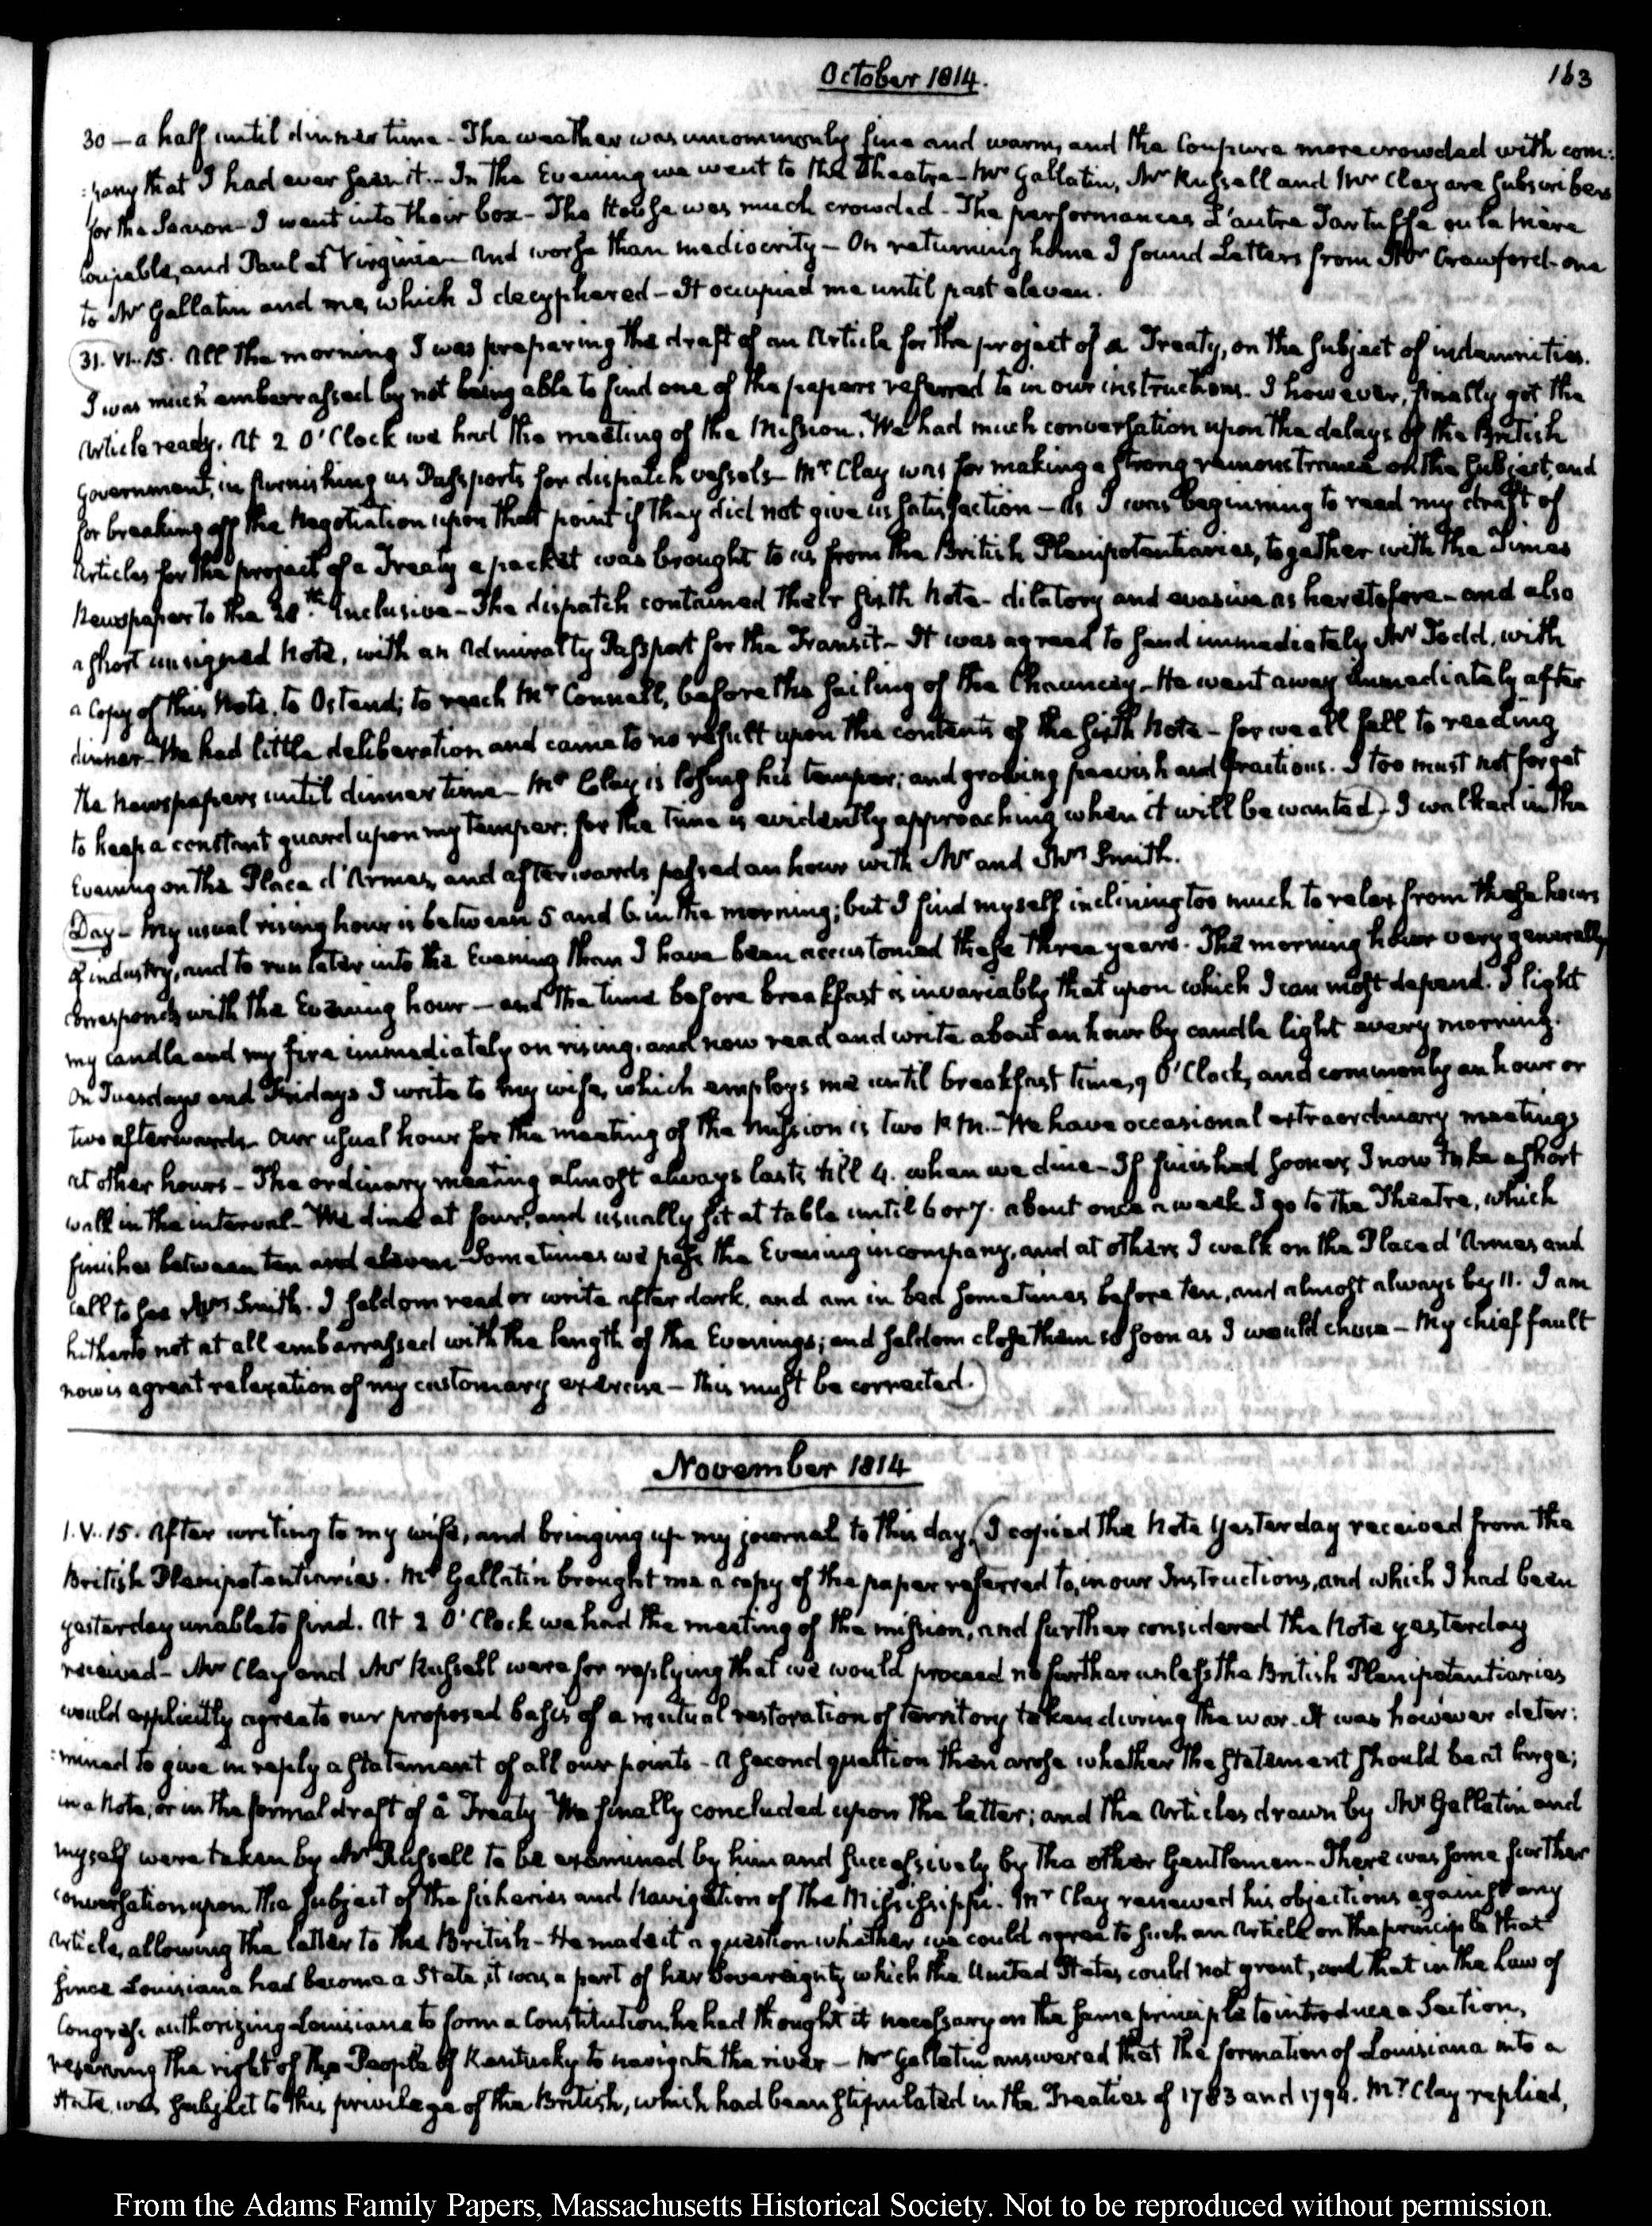 October 1814.
163
30 — a half until dinner time - The weather was uncommonly fine and warm, and the Coupure more crowded with com:
:pany that I had ever seen it. - In the Evening we went to the Theatre - Mr Gallatin, Mr Russell and Mr Clay are subscribers
for the Season - I went into their box - The House was much crowded - The performances L'autre Tartuffe ou la Mère
coupable, and Paul et Virginie - And worse than mediocrity - On returning home I found Letters from Mr Crawford - one
to Mr Gallatin and me, which I decyphered - It occupied me until past eleven.
31. VI. 15. All the morning I was preparing the draft of an Article for the project of a Treaty, on the subject of indemnities.
I was much embarrassed by not being able to find one of the papers referred to in our instructions. I however, finally got the
Article ready. At 2 O'Clock we had the meeting of the Mission. We had much conversation upon the delays of the British
Government, in furnishing us Passports for dispatch vessels - Mr Clay was for making a strong remonstrance on the subject, and
for breaking off the Negotiation upon that point if they did not give us satisfaction - As I was beginning to read my draft of
Articles for the project of a Treaty a packet was brought to us from the British Plenipotentiaries, together with the Times
Newspaper to the 28th inclusive - The dispatch contained their sixth Note - dilatory and evasive as heretofore - and also
a short unsigned Note, with an Admiralty Passport for the Transit - It was agreed to send immediately Mr Todd, with
a Copy of this Note, to Ostend; to reach Mr Connell, before the sailing of the Chauncey - He went away immediately after
dinner - We had little deliberation and came to no result upon the contents of the sixth Note - for we all fell to reading
the Newspapers until dinner time - Mr Clay is losing his temper; and growing peevish and fractious. I too must not forget
to keep a constant guard upon my temper; for the time is evidently approaching when it will be wanted) - I walked in the
Evening on the Place d'Armes, and afterwards passed an hour with Mr and Mrs Smith.
Day - My usual rising hour is between 5 and 6 in the morning; but I find myself inclining too much to relax from these hours
of industry, and to run later into the Evening than I have been accustomed these three years. The morning hour very generally
corresponds with the Evening hour - and the time before breakfast is invariably that upon which I can most depend. I light
my candle and my fire immediately on rising, and now read and write about an hour by candle light every morning.
On Tuesdays and Fridays I write to my wife, which employs me until breakfast time, 9 O'Clock, and commonly an hour or
two afterwards. Our usual hour for the meeting of the Mission is two P.M. - We have occasional extraordinary meetings
at other hours - The ordinary meeting almost always lasts till 4. when we dine - If finished sooner, I now take a short
walk in the interval - We dine at four, and usually sit at table until 6 or 7. about once a week I go to the Theatre, which
finishes between ten and eleven - Sometimes we pass the Evening in company, and at others I walk on the Place d'Armes and
call to see Mrs Smith. I seldom read or write after dark, and am in bed sometimes before ten, and almost always by 11. I am
hitherto not at all embarrassed with the length of the Evenings; and seldom close them so soon as I would chuse - My chief fault
now is a great relaxation of my customary exercise - this must be corrected.)
November 1814
1. V. 15. After writing to my wife, and bringing up my journal to this day, (I copied the Note yesterday received from the
British Plenipotentiaries. Mr Gallatin brought me a copy of the paper referred to, in our Instructions, and which I had been
yesterday unable to find. At 2 O'Clock we had the meeting of the mission, and further considered the Note yesterday
received - Mr Clay and Mr Russell were for replying that we would proceed no further unless the British Plenipotentiaries
would explicitly agree to our proposed basis of a mutual restoration of territory taken during the war. It was however deter:
:mined to give in reply a statement of all our points - A second question then arose whether the statement should be at large;
in a Note; or in the formal draft of a Treaty - We finally concluded upon the latter; and the Articles drawn by Mr Gallatin and
myself were taken by Mr Russell to be examined by him and successively by the other Gentlemen - There was some further
conversation upon the subject of the fisheries and Navigation of the Mississippi. Mr Clay renewed his objections against any
Article, allowing the latter to the British - He made it a question whether we could agree to such an Article on the principle that
since Louisiana had become a State, it was a part of her Sovereignty which the United States could not grant, and that in the Law of
Congress, authorizing Louisiana to form a Constitution, he had thought it necessary on the same principle to introduce a Section,
reserving the right of the People of Kentucky to navigate the river - Mr Gallatin answered that the formation of Louisiana into a
State, was subject to this privilege of the British, which had been stipulated in the Treaties of 1783 and 1794. Mr Clay replied,
From the Adams Family Papers, Massachusetts Historical Society. Not to be reproduced without permission.